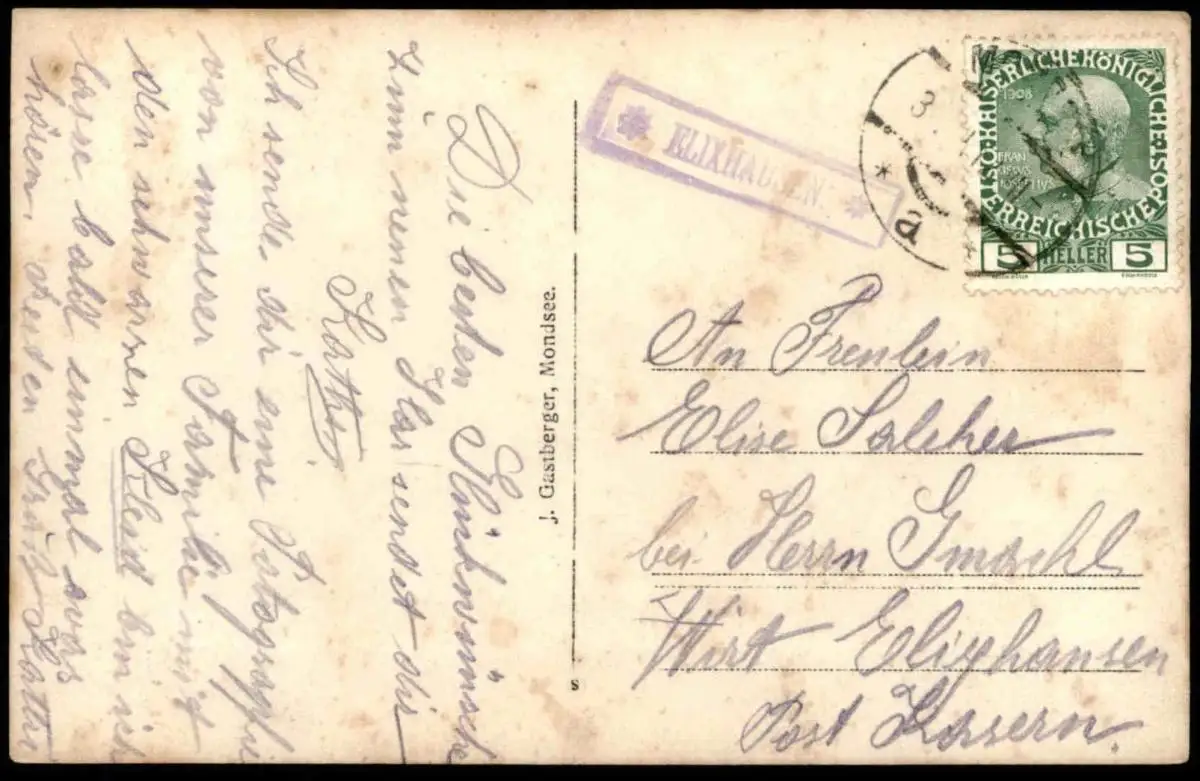 Die besten Glückwünsche
zum neuen Jar sendet dir
Kathi
Ich sende dir eine Fotografie
von unserer Familie mit
den schwarzen Kleid bin ich
lasse bald einmal was
hören. Besten Gruß Kathi
J. Gastberger, Mondsee.
S
* ELIXHAUSEN. *
3
* a *
KAISERLICHE KÖNIGLICHE
ÖSTERREICHISCHE POST
1908
FRAN
CISCVS
IOSEPHVS
I
5 HELLER 5
An Freulein
Elise Salcher
bei Herrn Gmachl
Wirt Elixhausen
Post Kasern.